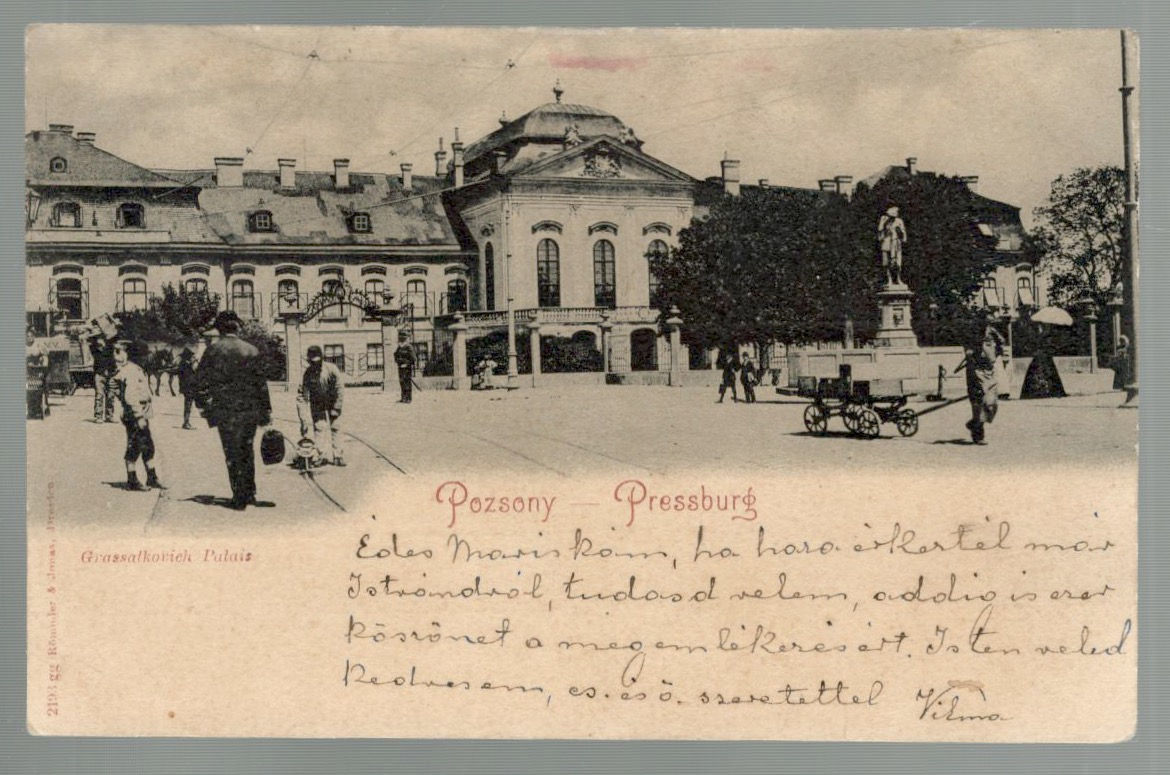 Pozsony — Pressburg
Grassalkovich Palais
2193 gg Römmler & Jonas, Dresden
Édes Mariskám, ha haza érkeztél már
Istvándról, tudasd velem, addig is ezer
köszönet a megemlékezésért. Isten veled
kedvesem, cs. és ö. szeretettel
Vilma